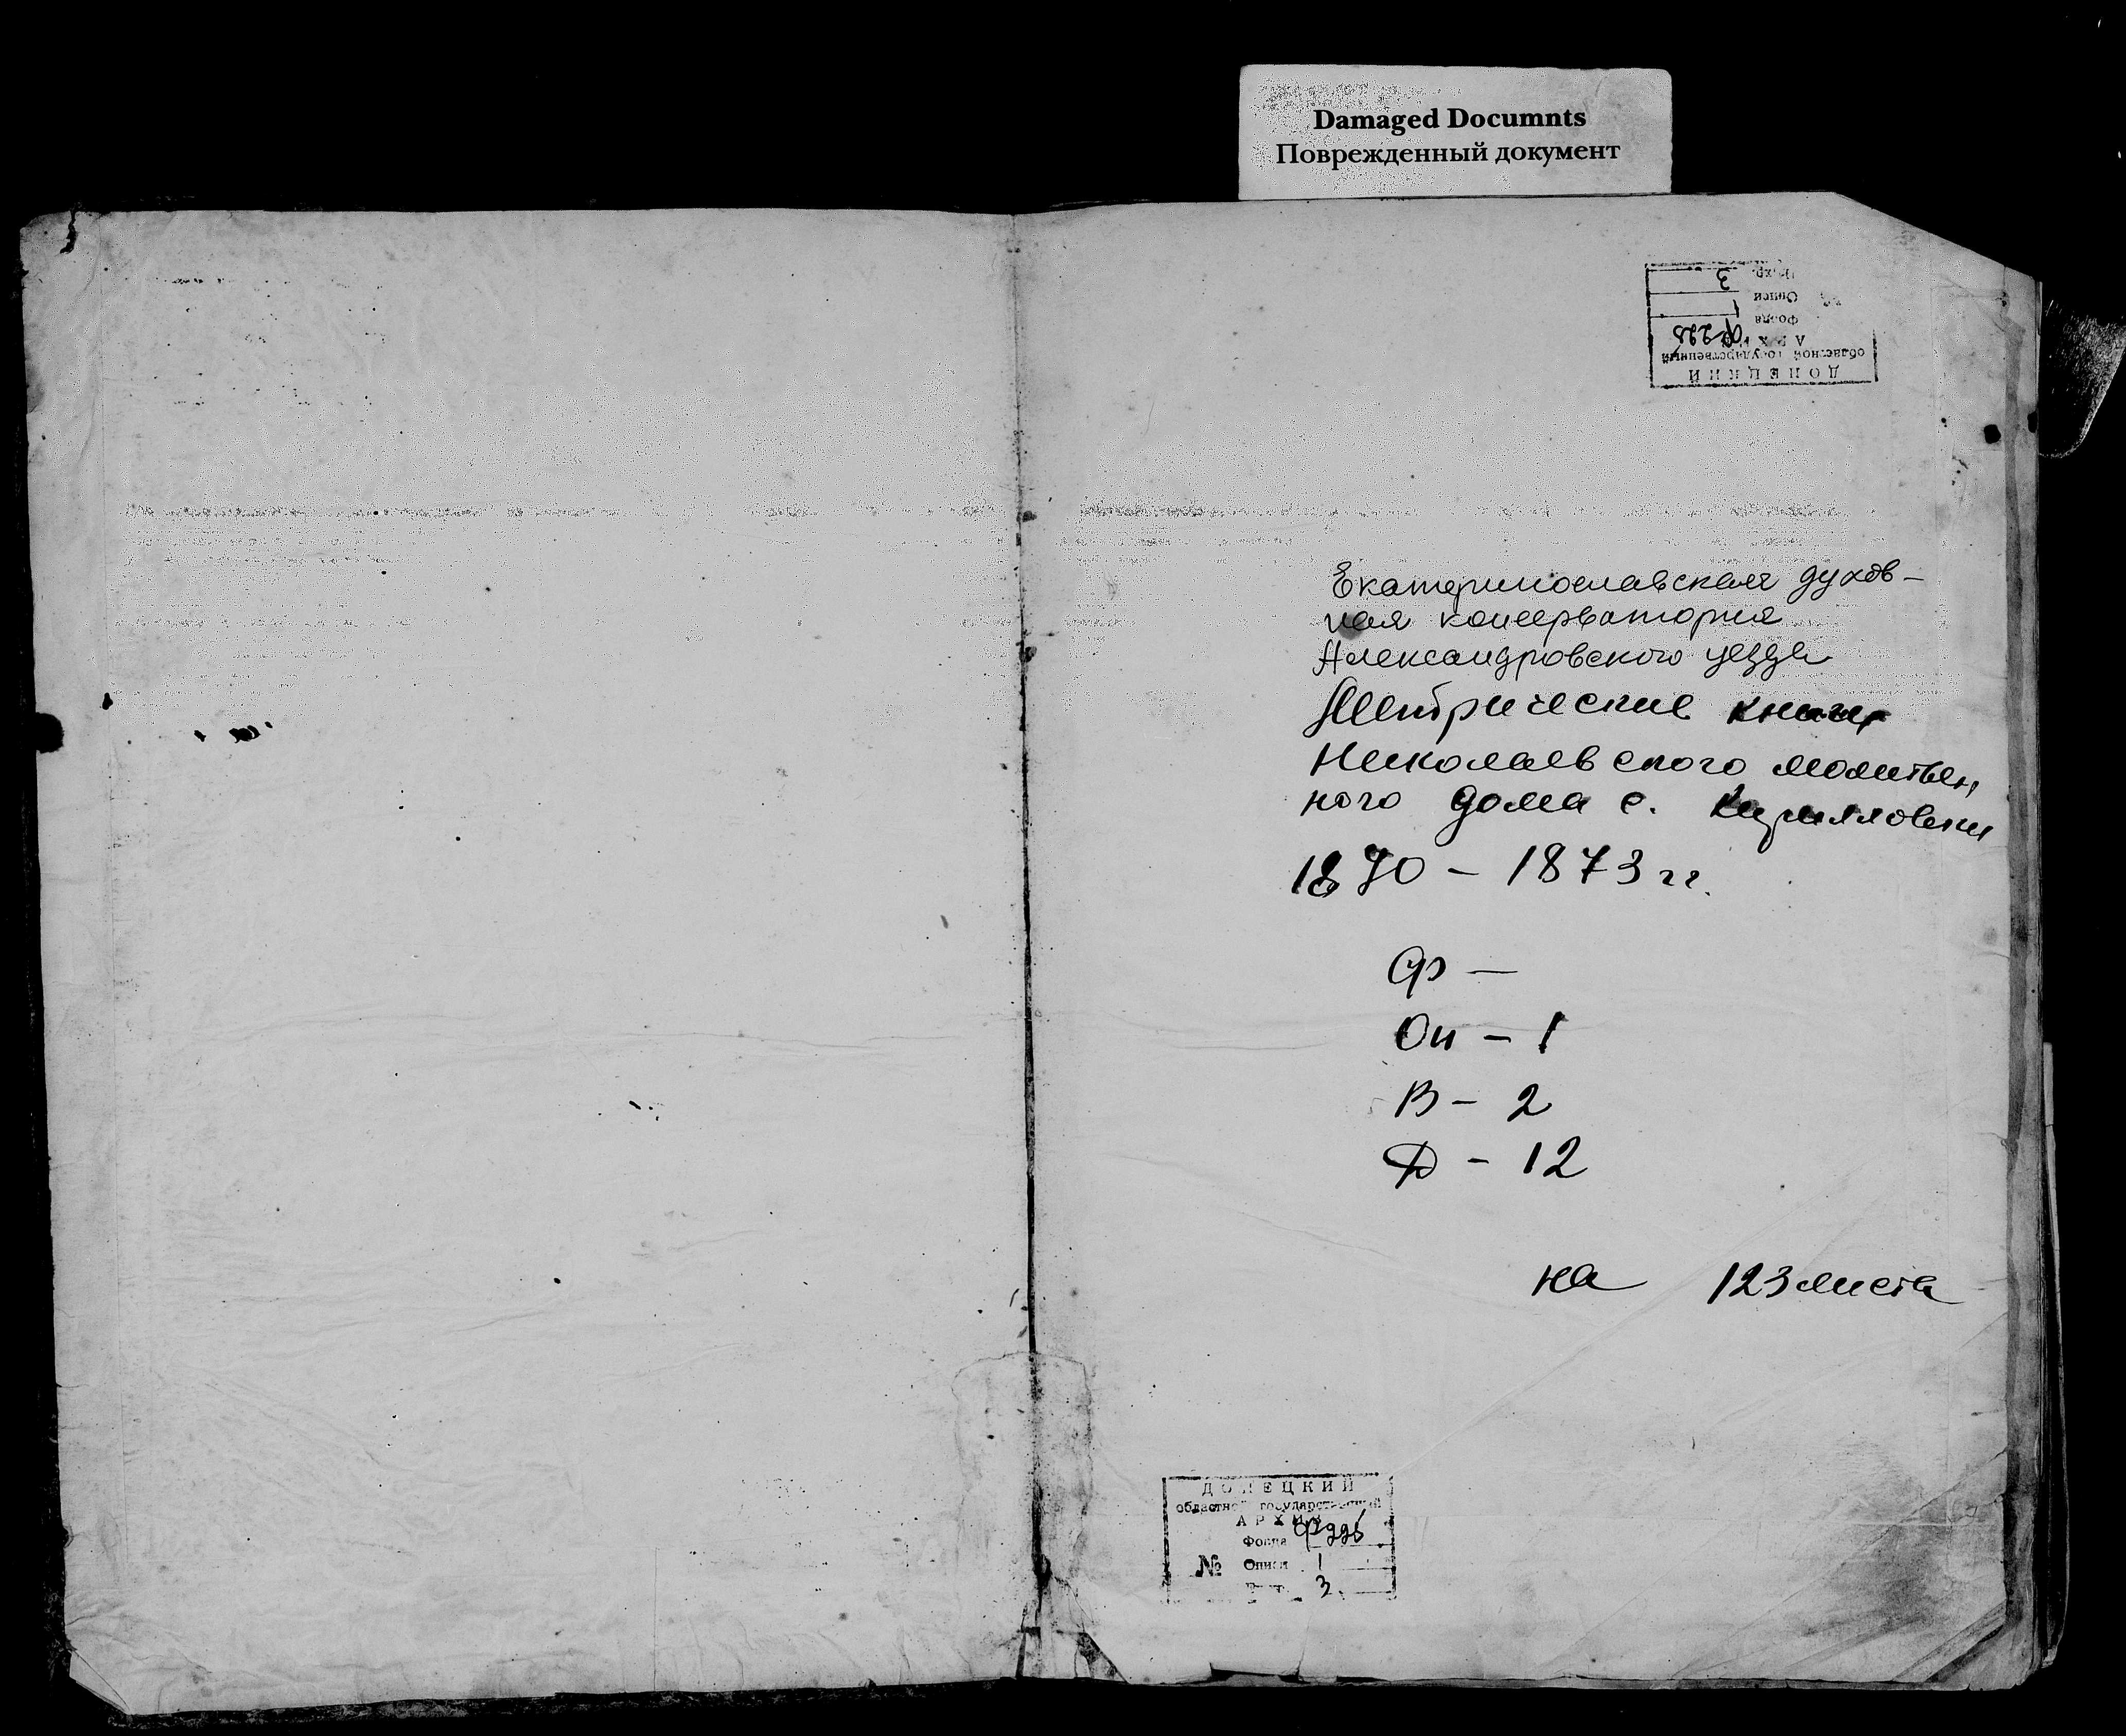 Damaged Documnts
Поврежденный документ
ДОНЕЦКИЙ
областной государственный
АРХИВ
Фонда Ф225
Описи 1
3
Екатеринославская духов-
ная консерватория
Александровского уезда
Метрические книги
Николаевского молитвен,
ного дома с.
1870 - 1873 гг.
Ф —
Оп - 1
В - 2
Д - 12
на 123 листа
ДОНЕЦКИЙ
областной государственный
АРХИВ
Фонда Ф225
№ Описи 1
3